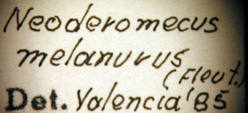 Neoderomecus
melanurus
(Fleut.)
Det. Valencia '85